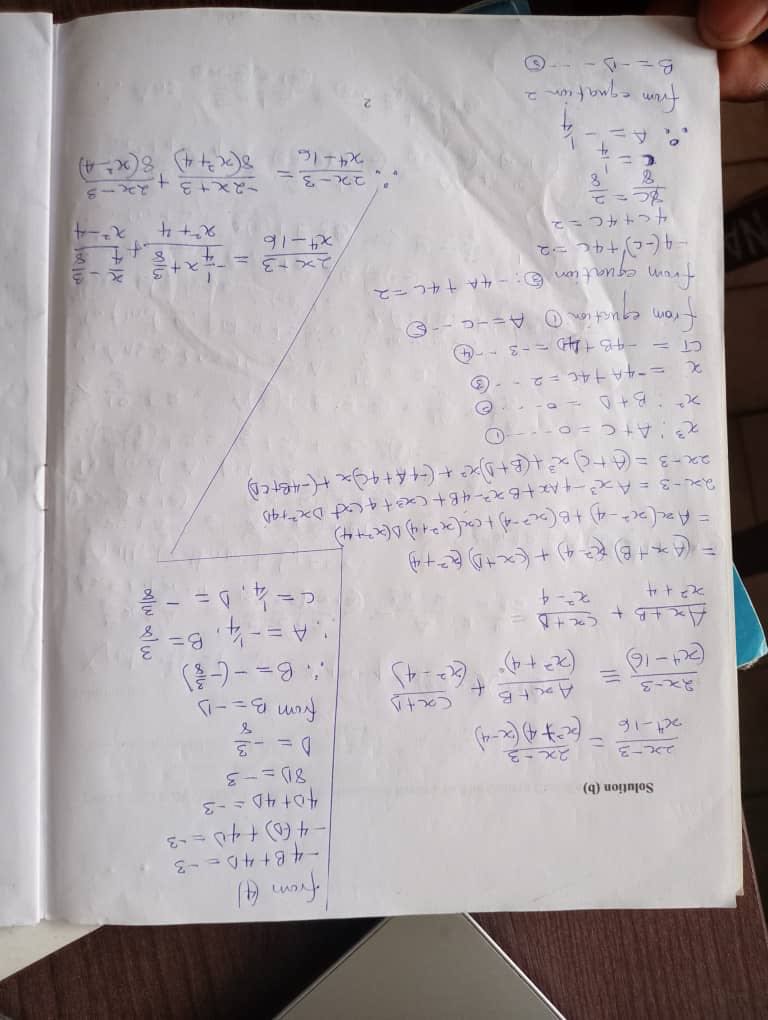 Solution (b)
2x-3/x⁴-16 = 2x-3/(x²+4)(x-4)
2x-3/(x⁴-16) ≡ Ax+B/(x²+4) + Cx+D/(x²-4)
Ax+B/x²+4 + Cx+D/x²-4 =
= (Ax+B)(x²-4) + (Cx+D)(x²+4)
= Ax(x²-4)+B(x²-4)+Cx(x²+4) D(x²+4)
2x-3 = Ax³-4Ax+Bx²-4B+Cx³+4Cx+Dx²+4D
2x-3 = (A+C)x³+(B+D)x²+(-4A+4C)x+(-4B+CD)
x³: A+C = 0 ---- ①
x²: B+D = 0 -- ②
x = -4A+4C = 2 -- ③
CT = -4B+4D = -3 -- ④
from equation ① A = -C -- ⑤
from equation ③: -4A+4C = 2
-4(-C)+4C = 2
4C+4C = 2
8C/8 = 2/8
C = 1/4
∴ A = -1/4
from equation 2
B = -D - --- ⑤
from (4)
-4B+4D = -3
-4(D)+4D = -3
4D+4D = -3
8D = -3
D = -3/8
from B = -D
∴ B = -(-3/8)
∴ A = -1/4, B = 3/8
C = 1/4, D = -3/8
2x-3/x⁴-16 = -1/4x+3/8/x²+4 + x/4-3/8/x²-4
∴ 2x-3/x⁴-16 = -2x+3/8(x²+4) + 2x-3/8(x²-4)
2